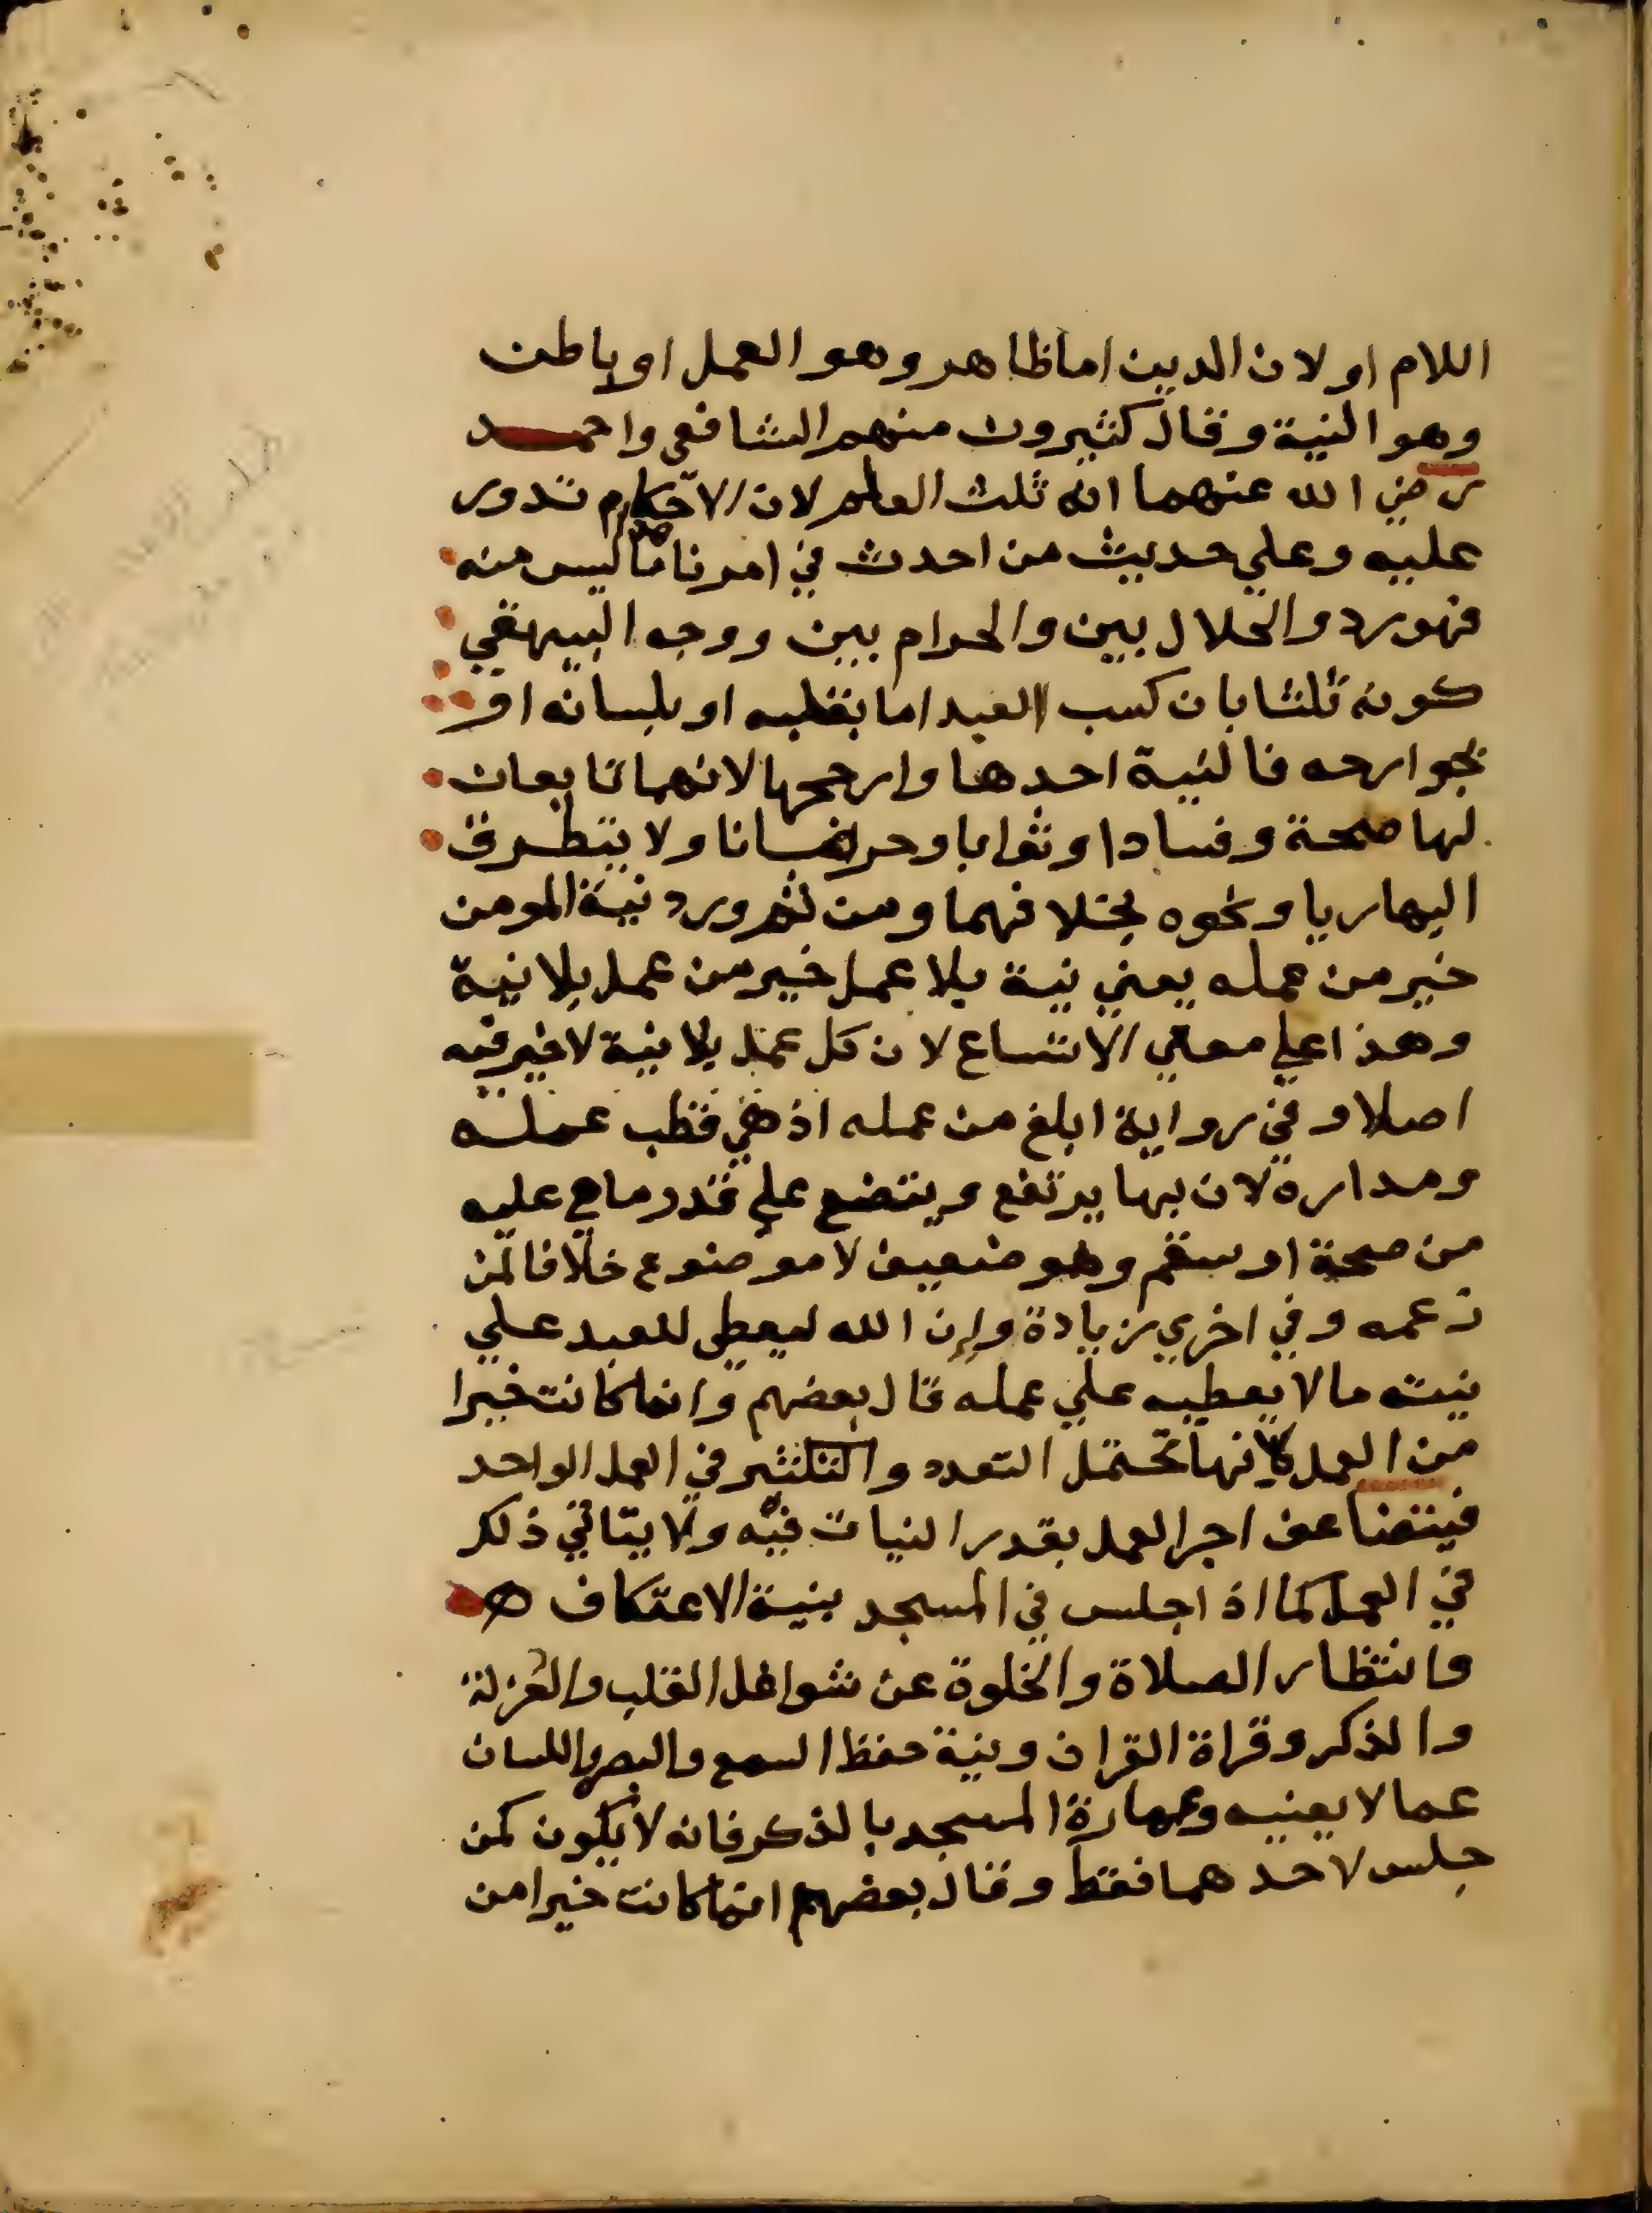 اللام او لان الدين اما ظاهر وهو العمل او باطن
وهو النية وقال كثيرون منهم الشافعي واحمد
رضي الله عنهما انه ثلث العلم لان الاحكام تدور
عليه وعلي حديث من احدث في امرنا هذا ما ليس منه
فهو رد والحلال بين والحرام بين ووجه البيهقي
كونه ثلثا بان كسب العبد اما بقلبه او بلسانه او
بجوارحه فالنية احدها وارجحها لانهما تابعان
لها صحة وفسادا وثوابا وحرمانا ولا يتطرق
اليها ريا ونحوه بخلافهما ومن ثم ورد نية المومن
خير من عمله يعني نية بلا عمل خير من عمل بلا نية
وهذا علي معاني الاتساع لان كل عمل بلا نية لا خير فيه
اصلا وفي رواية ابلغ من عمله اذ هي قطب عمله
ومداره لان بها يرتفع ويتضع علي قدر ما هي عليه
من صحة او سقم وهو ضعيف لا موضوع خلافا لمن
زعمه وفي اخري زيادة وان الله ليعطي للعبد علي
نيته ما لا يعطيه علي عمله قال بعضهم وانما كانت خيرا
من العمل لانها تحتمل التعدد والتكثير في العمل الواحد
فيتضاعف اجر العمل بقدر النيات فيه ولا يتاتي ذلك
في العمل كما اذا جلس في المسجد بنية الاعتكاف
وانتظار الصلاة والخلوة عن شواغل القلب والعزلة
والذكر وقراة القران ونية حفظ السمع والبصر واللسان
عما لا يعنيه وعمارة المسجد بالذكر فانه لا يكون كمن
جلس لاحدهما فقط وقال بعضهم انما كانت خيرا من